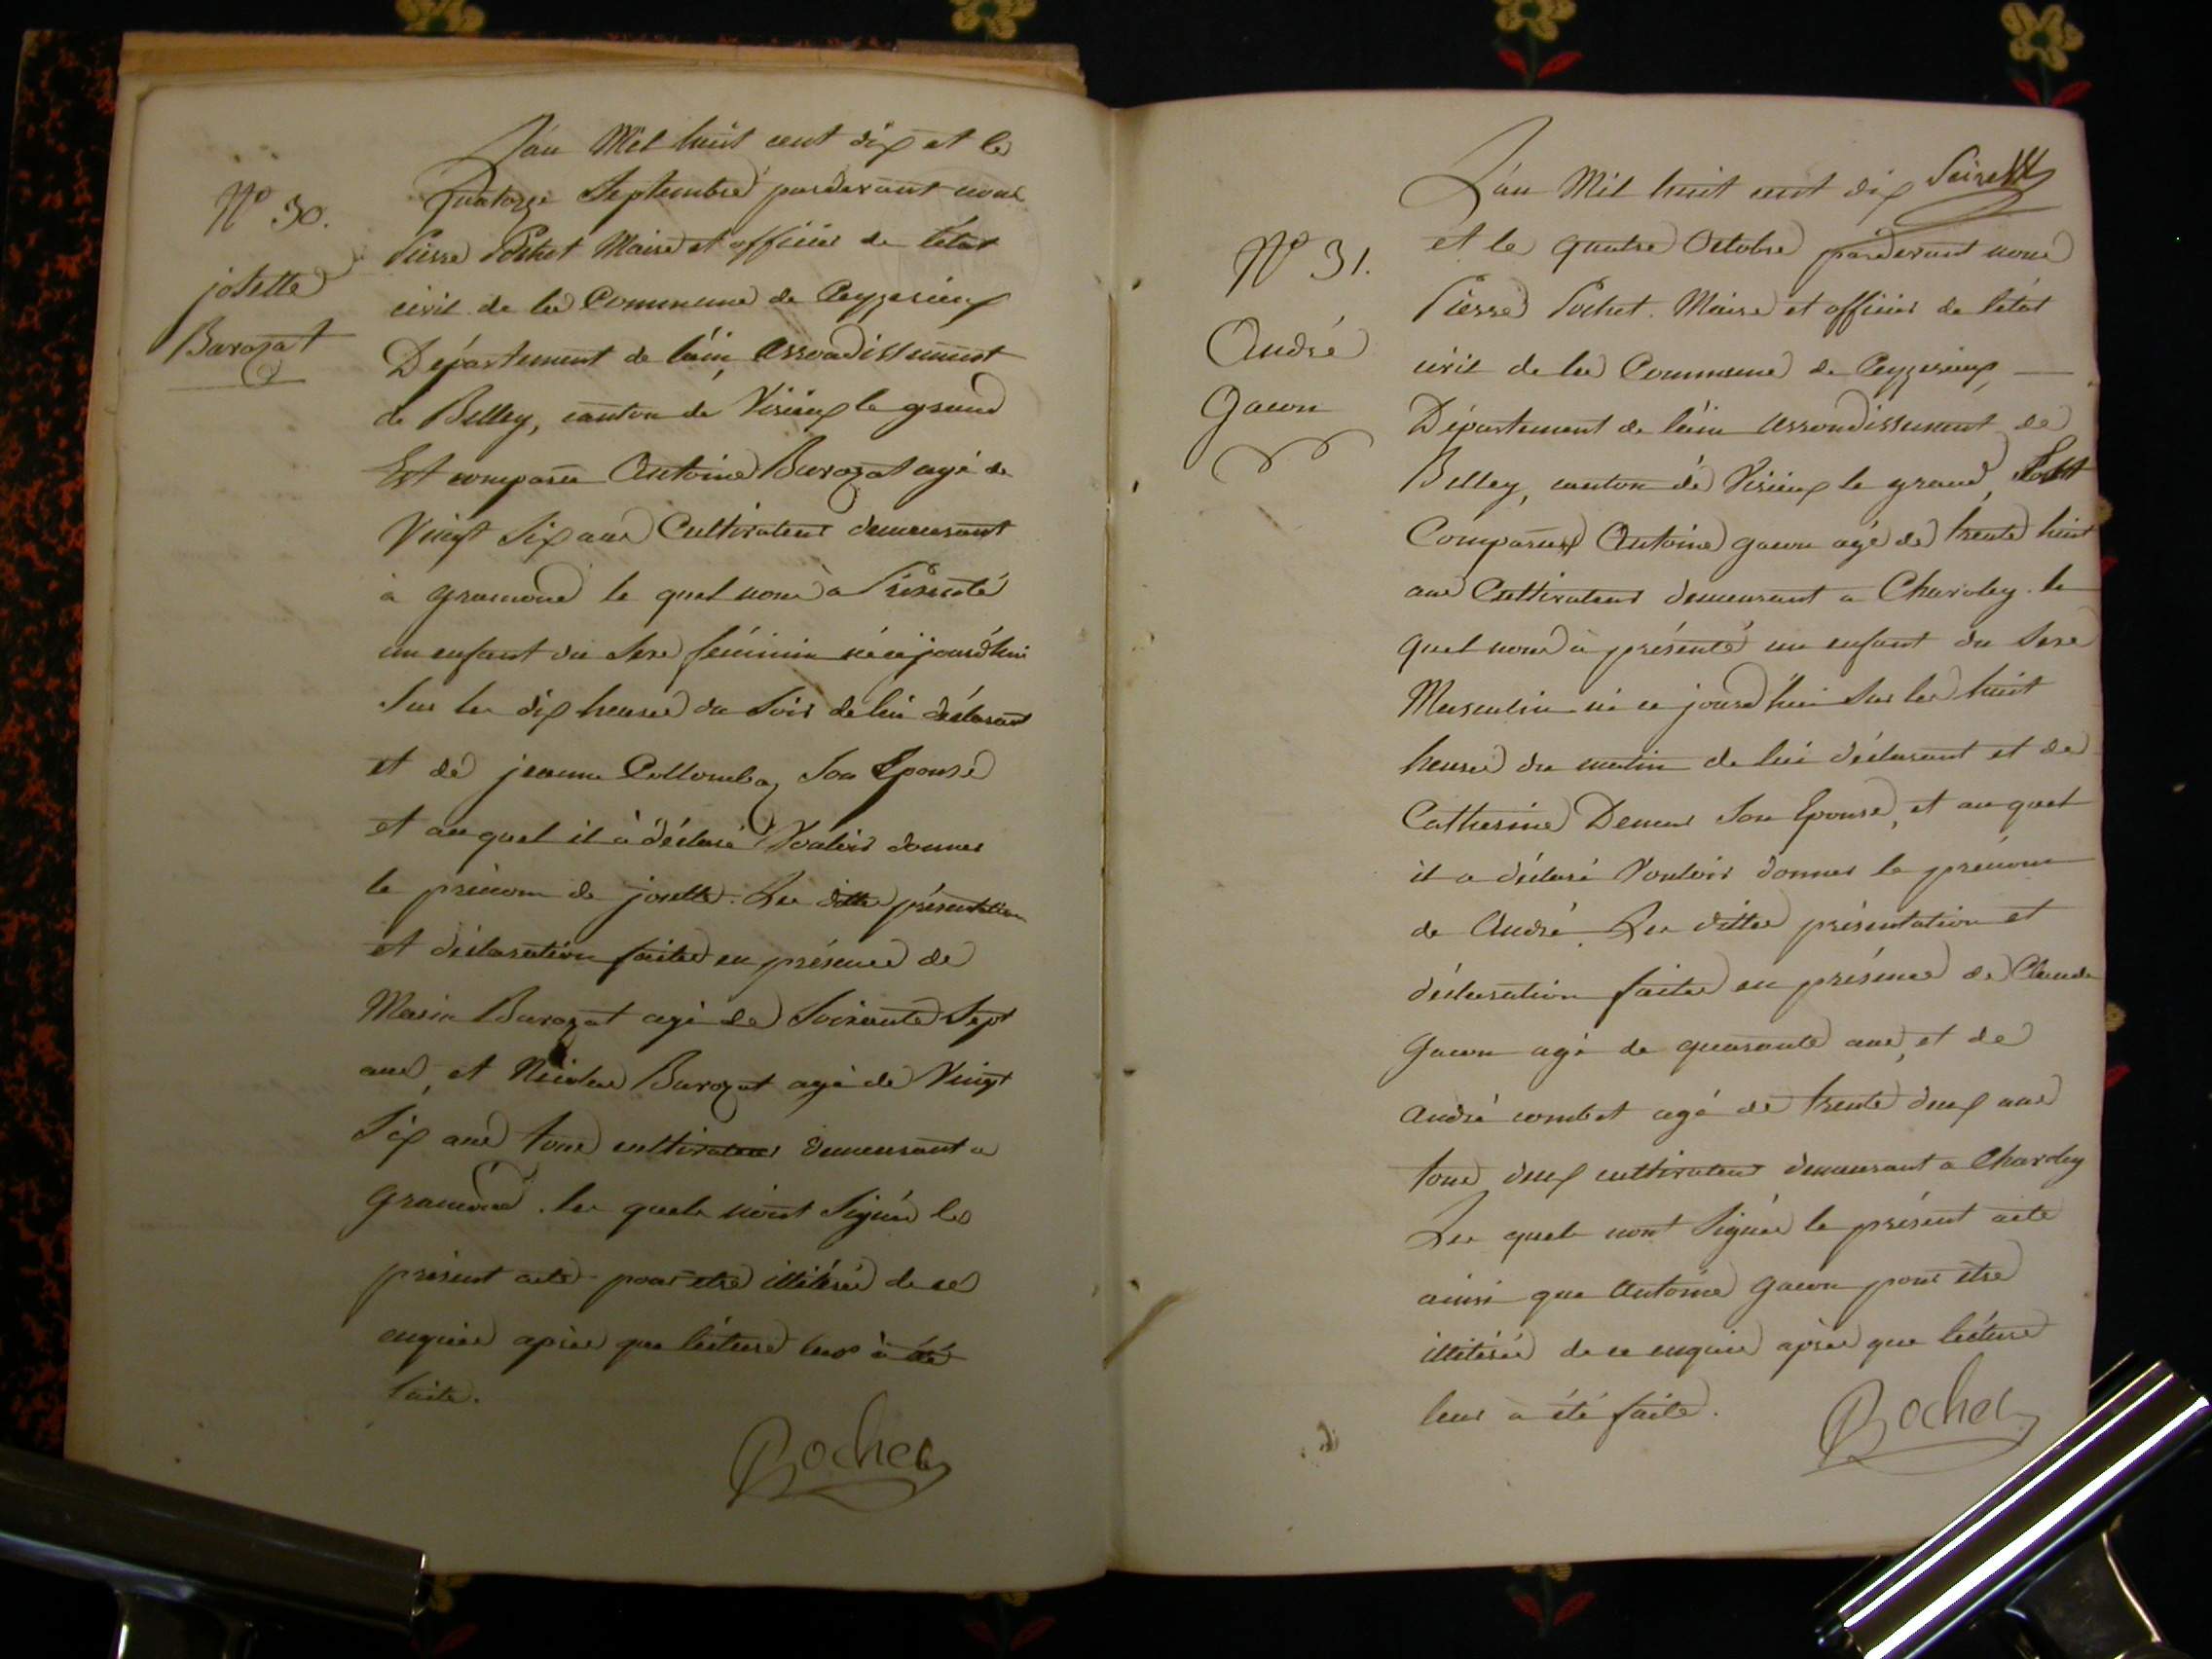 N° 30.
josette
Barozat
L'an Mil huit cent dix et le
Quatorze Septembre pardevant nous
Pierre Pochet Maire et officier de l'état
civil de la Commune de Ceyzerieux
Département de l'ain, arrondissement
de Belley, canton de Virieux le grand
Est comparu Antoine Barozat agé de
Vingt Six ans Cultivateur demeurant
à gramond le quel nous a Présenté
un enfant du Sexe féminin né cejourd'hui
Sur les dix heures du Soir de lui déclarant
et de jeanne Collomb Son Epouse
et au quel il à déclaré Vouloir donner
le prénom de josette. Les dittes présentation
et déclaration faites en présence de
Marin Barozat agé de Soixante Sept
ans, et Nicolas Barozat agé de Vingt
Six ans tous cultivateur demeurant a
gramond. les quels n'ont Signés le
présent acte pour etre illitérés de ce
enquies après que lécture leur à été
faite.
Pochet
N° 31.
André
Gacon
L'an Mil huit cent dix
et le quatre Octobre pardevant nous
Pierre Pochet. Maire et officier de l'état
civil de la Commune de Ceyzerieux
Département de l'ain arrondissement de
Belley, canton de Virieux le grand,
Comparu Antoine gacon agé de trente huit
ans Cultivateur demeurant a Charoley. le
quel nous à présenté un enfant du Sexe
Masculin né ce jourd'hui Sur les huit
heures du matin de lui déclarant et de
Catherine Demeur Son Epouse, et au quel
il a déclaré Vouloir donner le prénom
de André. Les dittes présentation et
déclaration faites en présence de Claude
Gacon agé de quarante ans, et de
André combet agé de trente deux ans
tous deux cultivateur demeurant a Charoley
Les quels n'ont Signés le présent acte
ainsi que Antoine gacon pour etre
illitérés de ce enquies après que lécture
leur a été faite.
Pochet